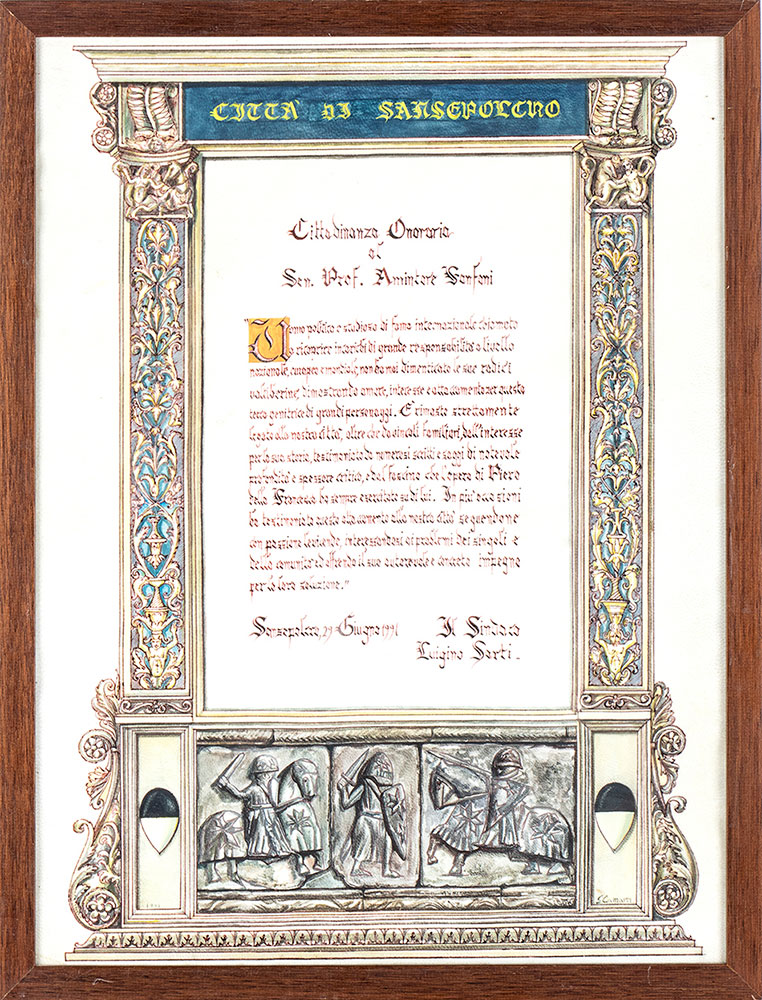 CITTA' DI SANSEPOLCRO
Cittadinanza Onoraria
al
Sen. Prof. Amintore Fanfani
Uomo politico e studioso di fama internazionale chiamato
a ricoprire incarichi di grande responsabilità a livello
nazionale, europeo e mondiale, non ha mai dimenticato le sue radici
valtiberine, dimostrando amore, interesse e attaccamento per questa
terra genitrice di grandi personaggi. E' rimasto strettamente
legato alla nostra città, oltre che da vincoli familiari, dall'interesse
per la sua storia, testimoniato da numerosi scritti e saggi di notevole
profondità e spessore critico, e dal fascino che l'opera di Piero
della Francesca ha sempre esercitato su di lui. In più occasioni
ha testimoniato questo attaccamento alla nostra città seguendone
con passione le vicende, interessandosi ai problemi dei singoli e
della comunità ed offrendo il suo autorevole e concreto impegno
per la loro soluzione."
Sansepolcro, 29 Giugno 1991 Il Sindaco
Luigino Sarti.